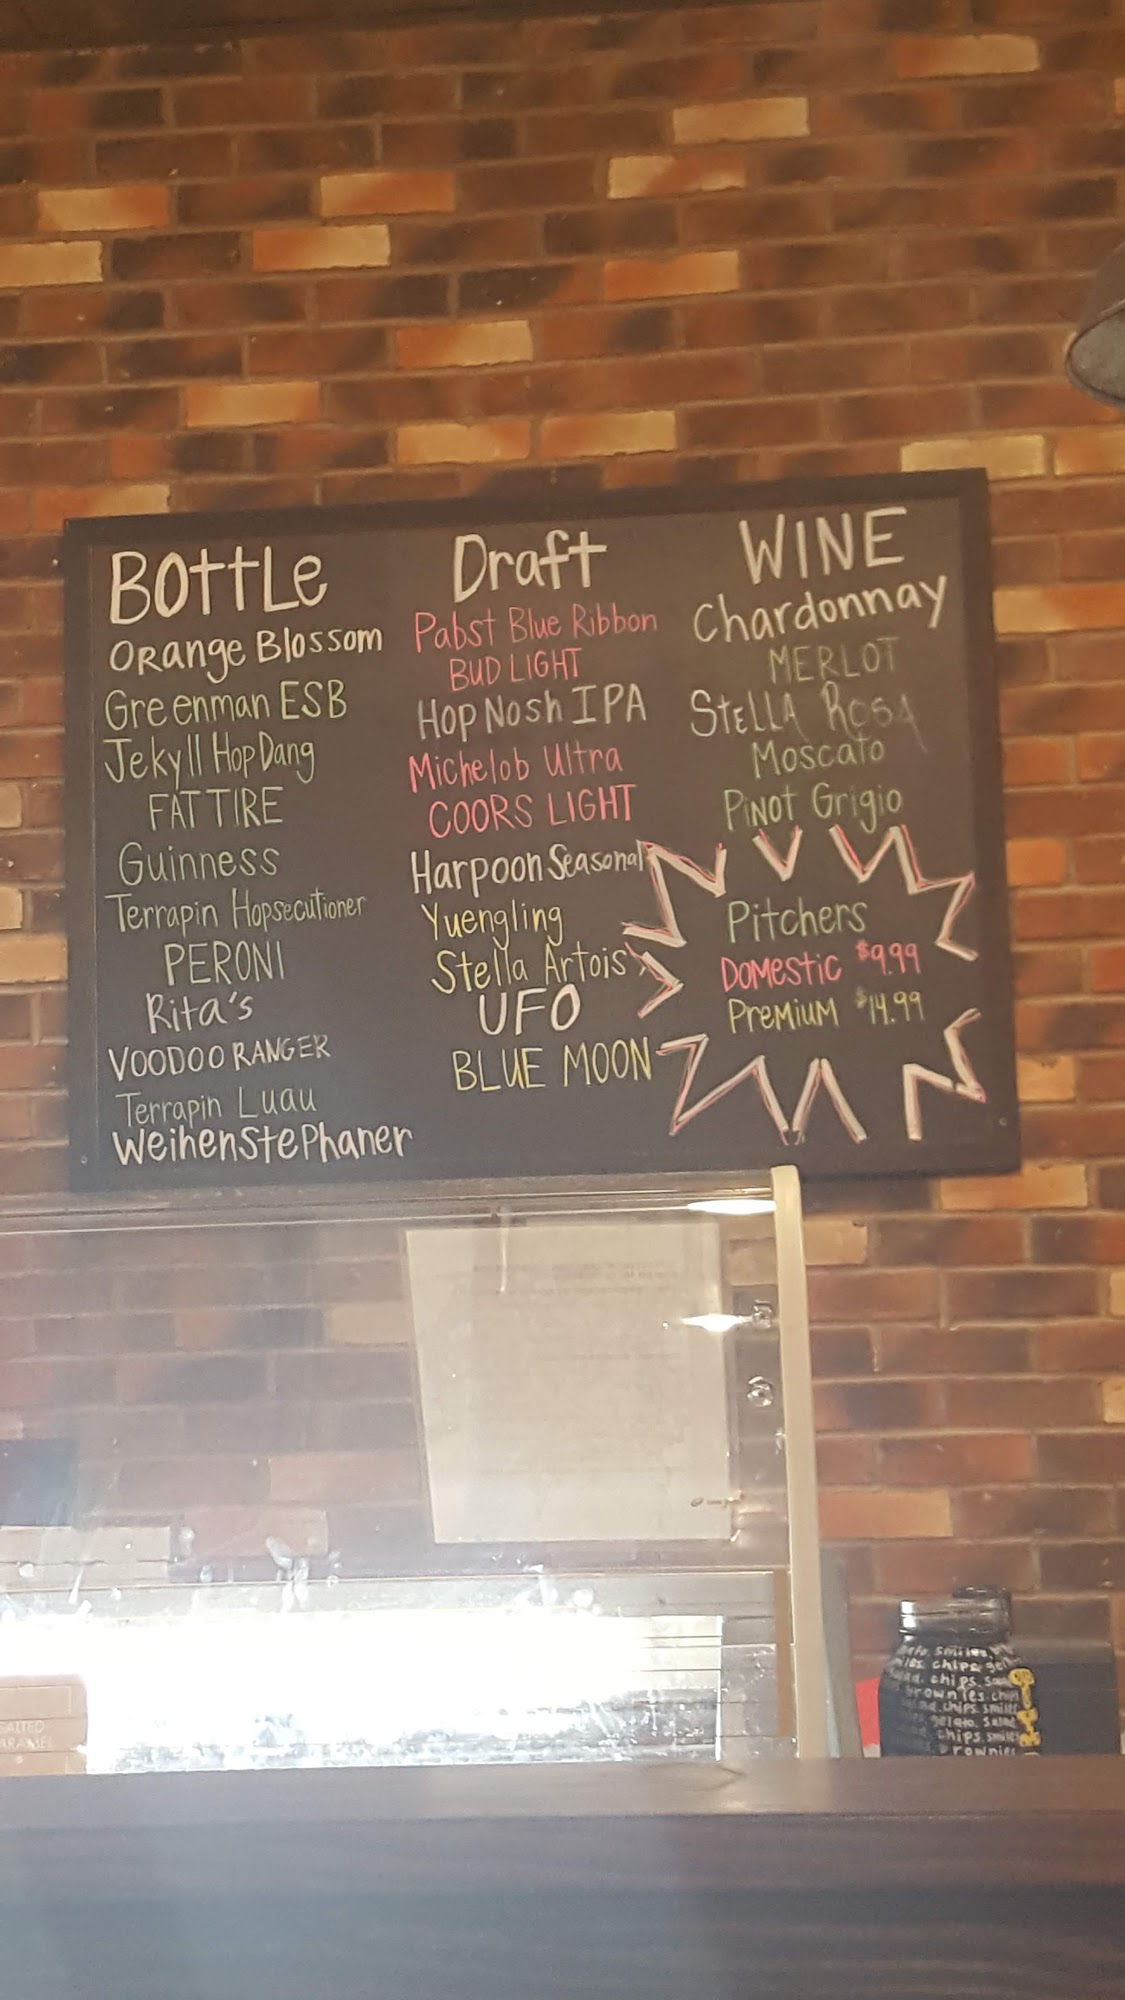 BOttLe
ORange Blossom
Greenman ESB
Jekyll Hop Dang
FAT TIRE
Guinness
Terrapin Hopsecutioner
PERONI
Rita's
VOODOO RANGER
Terrapin Luau
WeihenstePhaner
Draft
Pabst Blue Ribbon
BUD LIGHT
Hop Nosh IPA
Michelob Ultra
COORS LIGHT
Harpoon Seasonal
Yuengling
Stella Artois
UFO
BLUE MOON
WINE
Chardonnay
MERLOT
STELLA ROSA
Moscato
PiNOT Grigio
Pitchers
DOMESTIC $9.99
PREMIUM $14.99
SALTED
CARAMEL
smiles
chips
chips
brownies chips
chips smiles
gelato salad
chips smiles
brownies